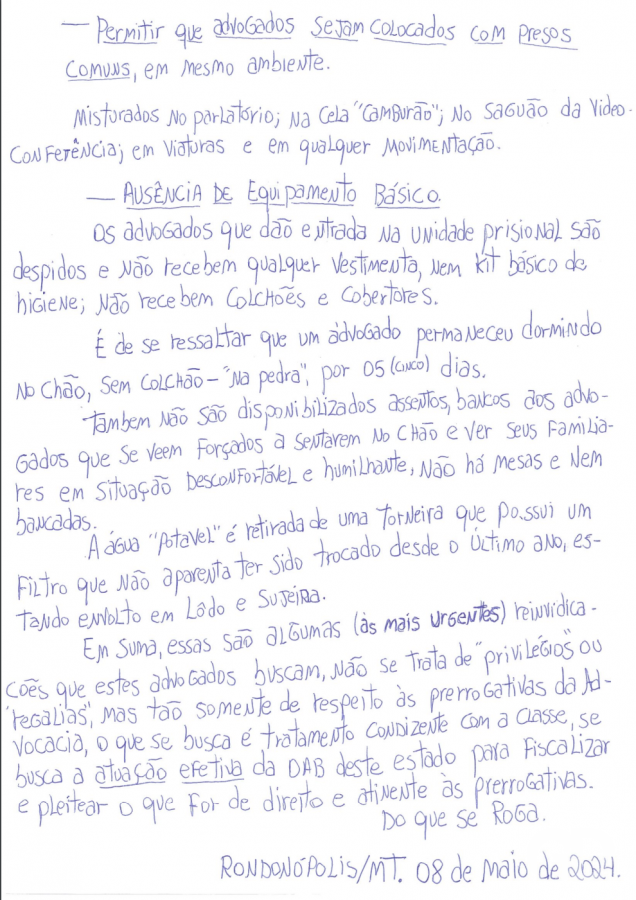 — Permitir que advogados sejam colocados com presos
comuns, em mesmo ambiente.
Misturados no parlatório; na cela "camburão"; no saguão da video-
conferência; em viaturas e em qualquer movimentação.
— Ausência de Equipamento Básico.
Os advogados que dão entrada na unidade prisional são
despidos e não recebem qualquer vestimenta, nem kit básico de
higiene; não recebem colchões e cobertores.
É de se ressaltar que um advogado permaneceu dormindo
no chão, sem colchão - "na pedra", por 05 (cinco) dias.
Tambem não são disponibilizados assentos, bancos aos advo-
gados que se veem forçados a sentarem no chão e ver seus familia-
res em situação desconfortável e humilhante, não há mesas e nem
bancadas.
A água "potavel" é retirada de uma torneira que possui um
filtro que não aparenta ter sido trocado desde o último ano, es-
tando envolto em lôdo e sujeira.
Em suma, essas são algumas (às mais urgentes) reinvidica-
cões que estes advogados buscam, não se trata de "privilégios" ou
"regalias", mas tão somente de respeito às prerrogativas da Ad-
vocacia, o que se busca é tratamento condizente com a classe, se
busca a atuação efetiva da OAB deste estado para fiscalizar
e pleitear o que for de direito e atinente às prerrogativas.
Do que se roga.
Rondonópolis/MT. 08 de maio de 2024.